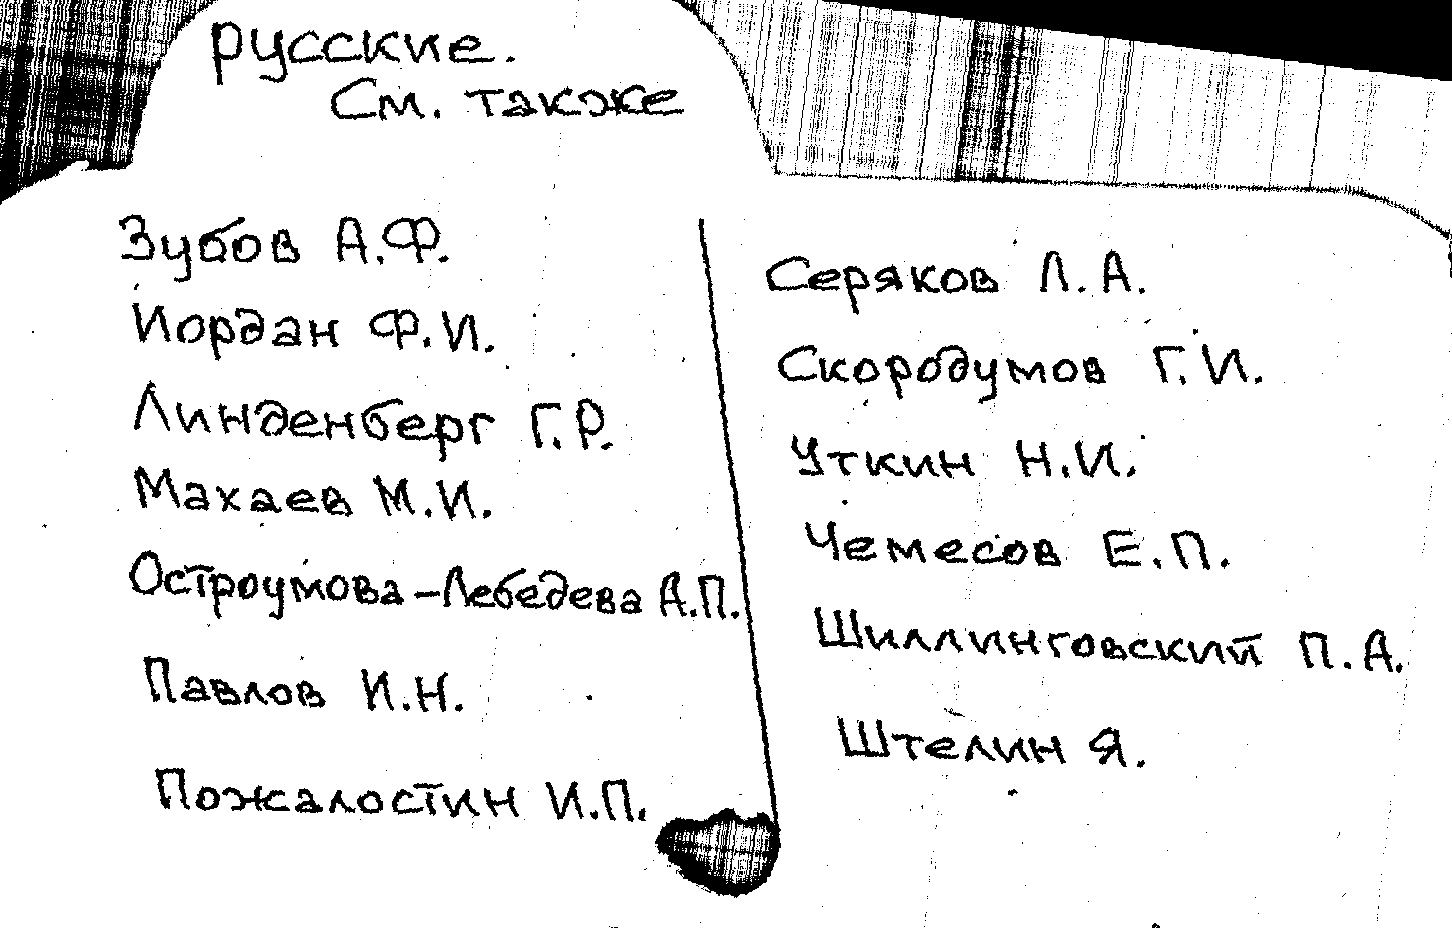 русские.
См. также
Зубов А.Ф.
Иордан Ф.И.
Линденберг Г.Р.
Махаев М.И.
Остроумова-Лебедева А.П.
Павлов И.Н.
Пожалостин И.П.
Серяков Л.А.
Скородумов Г.И.
Уткин Н.И.
Чемесов Е.П.
Шиллинговский П.А.
Штелин Я.